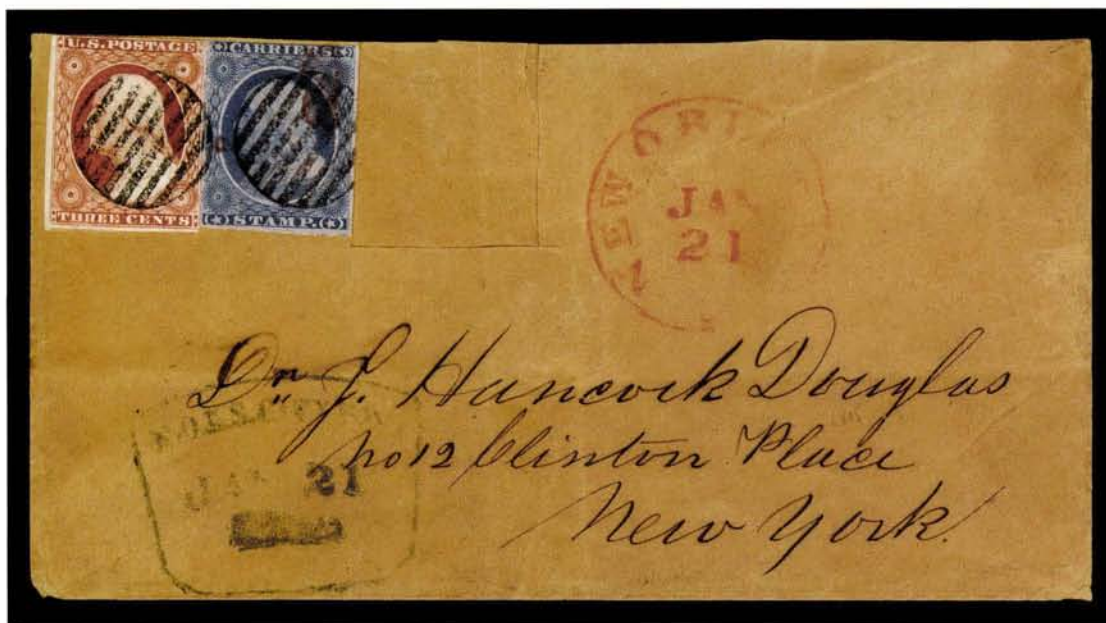 U.S. POSTAGE
THREE CENTS
CARRIERS
STAMP.
NEW ORL
JAN
21
Dr. J. Hancock Douglas
No 12 Clinton Place
New York.
JAN 21